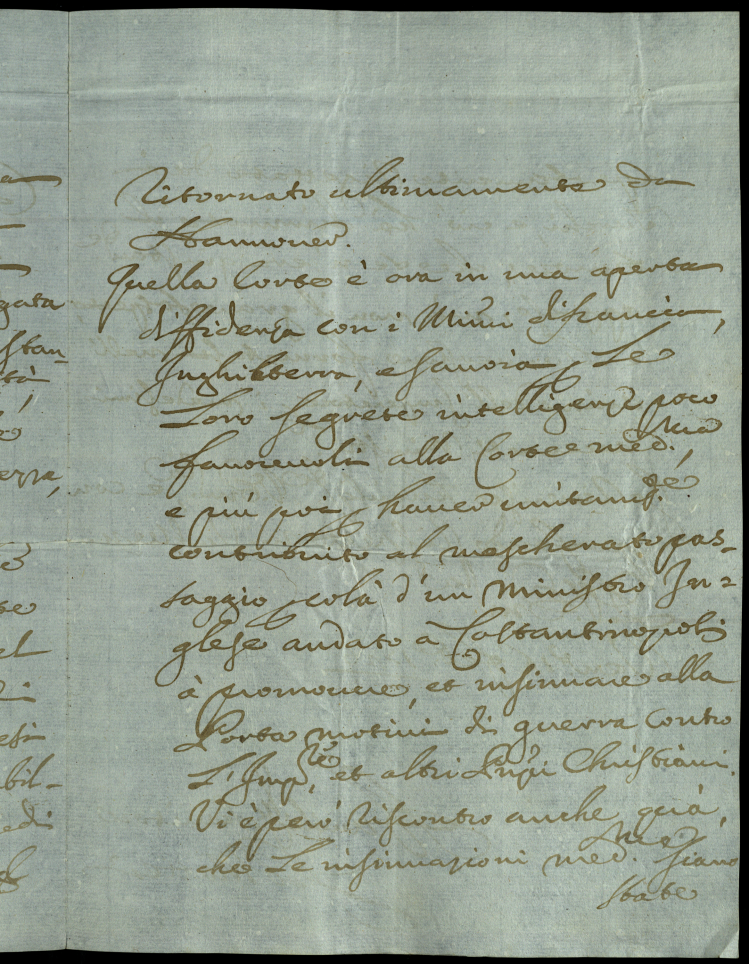 Ritornato ultimamente da
Hannover.
Quella Corte è ora in una aperta
diffidenza con i Minri di francia,
Inghilterra, e Savoia p Le
Loro segrete intelligenze poco
favorevoli alla Corte medma,
e più poi p haver unitamte
contribuito al mescherato pas-
saggio p colà d'un Ministro In=
glese andato à Costantinopoli
à promovere, et insinuare alla
Porta motivi di guerra contro
L'Impre, et altri Prnpi Christiani.
Vi è però riscontro anche quà,
che Le insinuazioni medme siano
state
gata
stan-
tà
ezza,
se
el
esi
bil-
edi